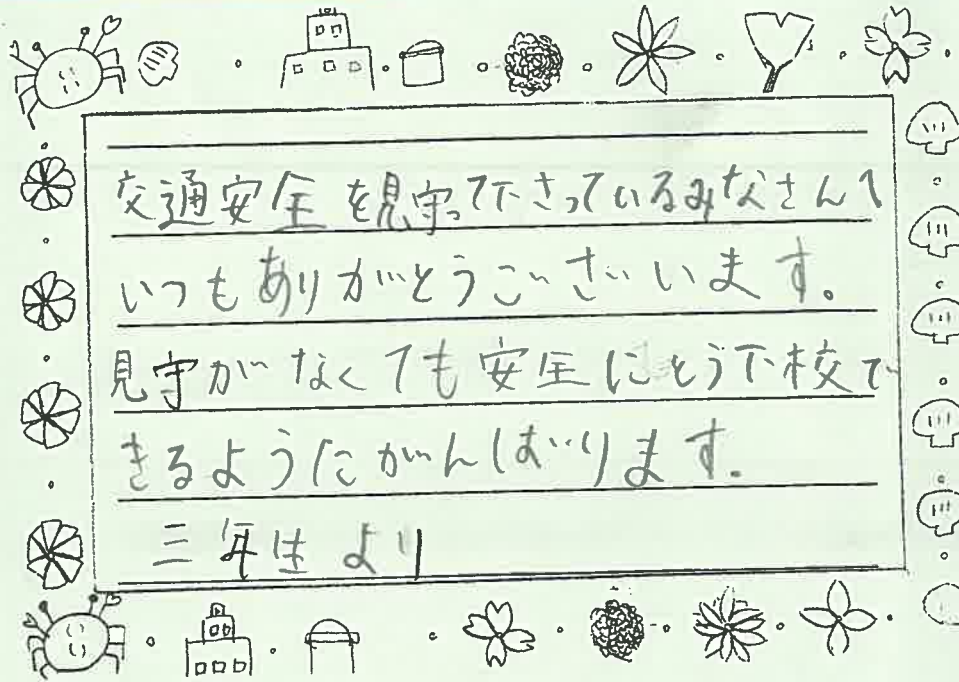 交通安全を見守って下さっているみなさんへ
いつもありがとうございます。
見守がなくても安全にとう下校で
きるようにがんばります。
三年生より